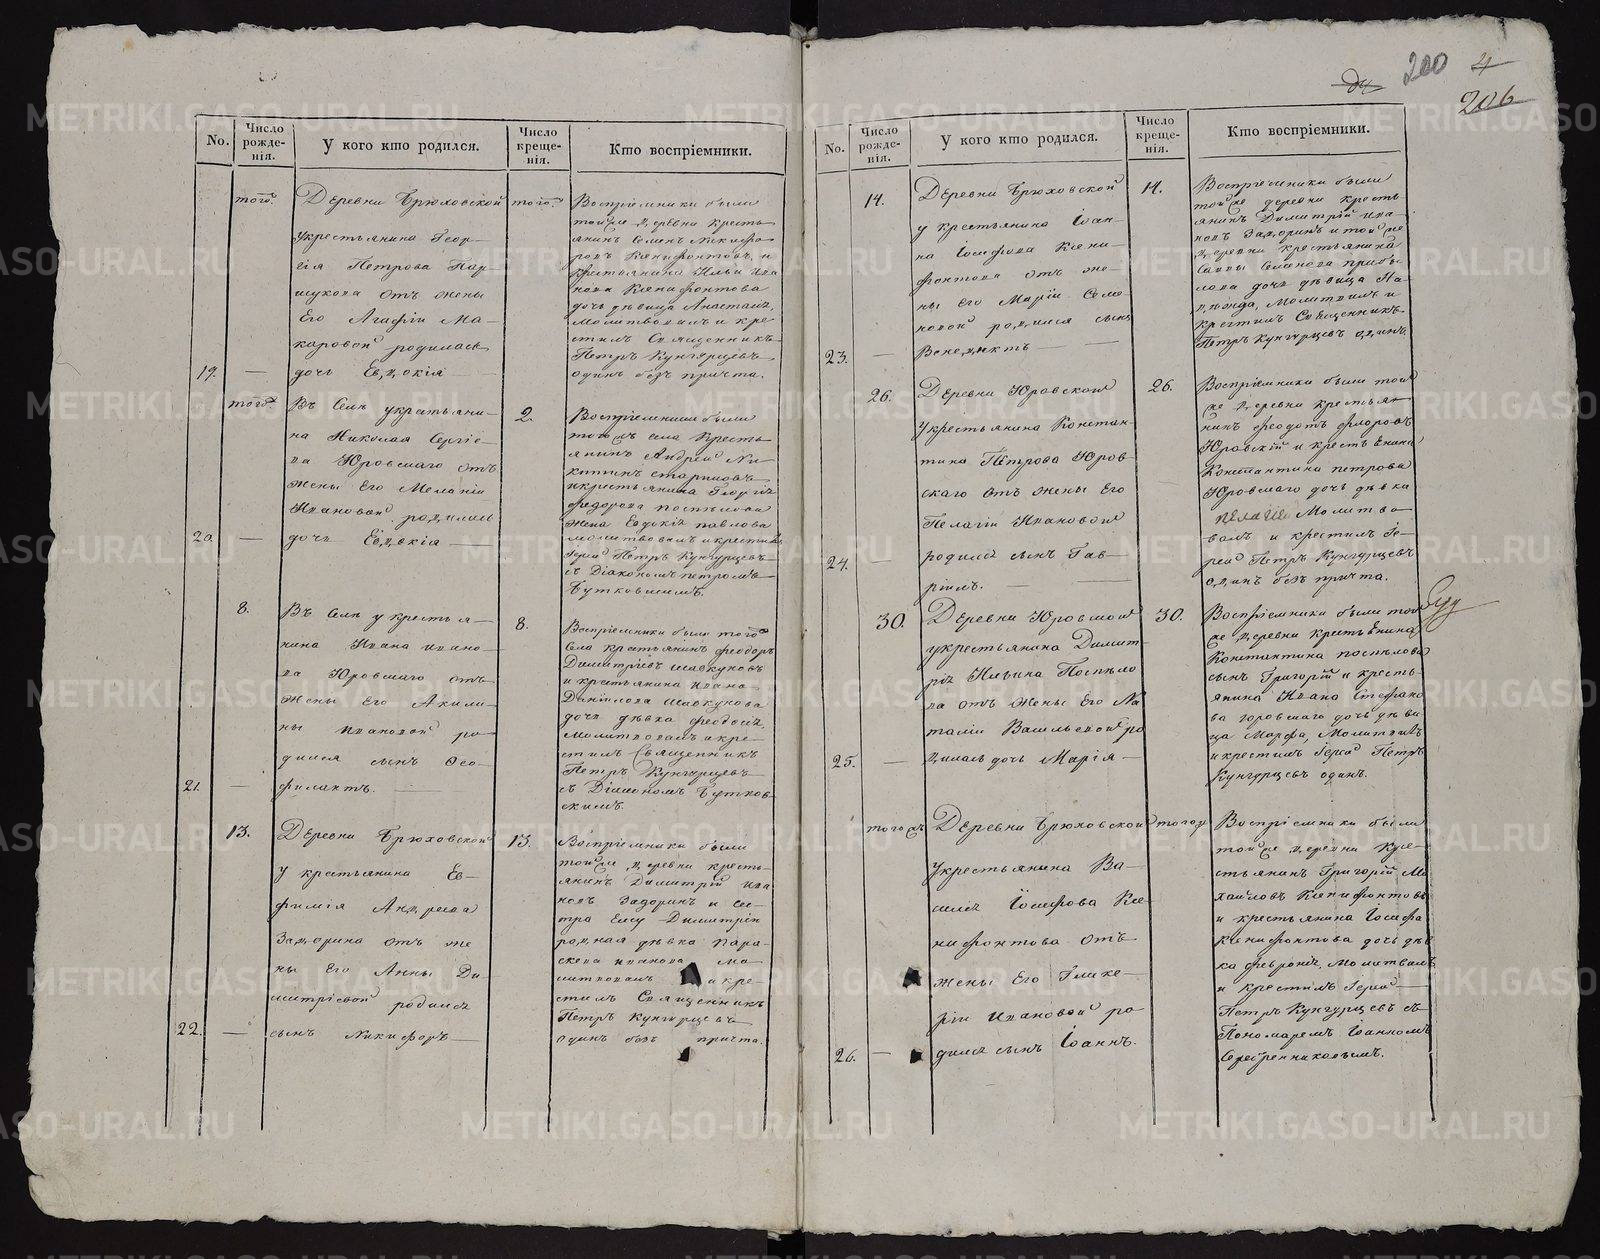 200 4
206
No.
Число рожде-нія.
У кого кто родился.
Число креще-нія.
Кто воспріемники.
того.
Деревни Брюховской
у крестьянина Геор-
гія Петрова Пар-
шукова отъ жены
Его Агафіи Ма-
каровой родилась
19. — дочь Евдокія —
того.
Воспріемники были
той же деревни кресть-
янинъ Семенъ Никифо-
ровъ Ксенифонтовъ и
крестьянина Ильи Ива
нова Ксенифонтова
дочь дѣвица Анастасія,
Молитвовалъ и кре
стилъ Священникъ
Петръ Кунгурцевъ
одинъ безъ причта.
того.
Въ Селѣ у крестьяни-
на Николая Сергіе-
ва Юровскаго отъ
жены Его Меланіи
Ивановой родилась
20. — дочь Евдокія —
2.
Воспріемники были
тогожъ села Кресть-
янинъ Андрей Ни-
китинъ
и крестьянина Георгія
Федорова Поспѣлова
жена Евдокія Павлова
молитвовалъ и крестилъ
Іерей Петръ Кунгурцевъ
съ Діакономъ Петромъ
Бутковскимъ.
8.
Въ Селѣ у крестья-
нина Ивана Ивано-
ва Юровскаго отъ
жены Его Акили-
ны Ивановой ро-
дился сынъ Ѳео-
21. — филактъ. —
8.
Воспріемники были того
Села крестьянинъ Феодоръ
Димитріевъ Шавкуновъ
и крестьянина Ивана
Данилова Шавкунова
дочь дѣвка Феодосія,
Молитвовалъ и кре-
стилъ Священникъ
Петръ Кунгурцевъ
съ Діакономъ Бутков-
скимъ.
13.
Деревни Брюховской
у крестьянина Ев-
фимія Андреева
Задорина отъ же
ны Его Анны Ди-
митріевой родился
22. — сынъ Никифоръ —
13.
Воспріемники были
той же деревни кресть-
янинъ Димитрій Ива
новъ Задоринъ и Сес-
тра Ему Димитрію
родная дѣвка Пара-
скева Иванова Мо-
литвовалъ и кре-
стилъ Священникъ
Петръ Кунгурцевъ
одинъ безъ причта.
No.
Число рожде-нія.
У кого кто родился.
Число креще-нія.
Кто воспріемники.
14.
Деревни Брюховской
у крестьянина Іоан-
на Іосифова Ксени-
фонтова отъ же-
ны его Маріи Семе-
новой родился сынъ
23. — Венедиктъ —
14.
Воспріемники были
той же деревни кресть
янинъ Димитрій Ива-
новъ Задоринъ и той же
деревни крестьянина
Саввы Семенова
дочь дѣвица На-
дежда, Молитвилъ и
крестилъ Священникъ
Петръ Кунгурцевъ одинъ.
26.
Деревни Юровской
у крестьянина Констан-
тина Петрова Юров-
скаго отъ жены Его
Пелагіи Ивановой
родился сынъ Гав-
24. — ріилъ. —
26.
Воспріемники были той
же деревни крестья-
нинъ Феодотъ Флоровъ
Юровскій и крестьянина
Константина Петрова
Юровскаго дочь дѣвка
Пелагія Молитво-
валъ и крестилъ Іе-
рей Петръ Кунгурцевъ
одинъ безъ причта.
30.
Деревни Юровской
у крестьянина Димит-
рія Ильина Поспѣло
ва отъ жены Его На
таліи Васильевой ро
25. — дилась дочь Марія —
30.
Воспріемники были той
же деревни крестьянина
Константина Поспѣлова
сынъ Григорій и кресть-
янина Ивана Стефано
ва Юровскаго дочь дѣви
ца Марфа, Молитвилъ
и крестилъ Іерей Петръ
Кунгурцевъ одинъ.
тогожъ
Деревни Брюховской
у крестьянина Ва-
силія Іосифова Ксе
нифонтова отъ
жены Его Глике-
ріи Ивановой ро-
26. — дился сынъ Іоаннъ.
тогожъ
Воспріемники были
той же деревни кре-
стьянинъ Григорій Ми
хайловъ Ксенифонтовъ
и крестьянина Іосифа
Ксенифонтова дочь дѣв
ка Феврони́я, Молитвилъ
и крестилъ Іерей —
Петръ Кунгурцевъ съ
Пономаремъ Іоанномъ
Серебренниковымъ.
METRIKI.GASO-URAL.RU